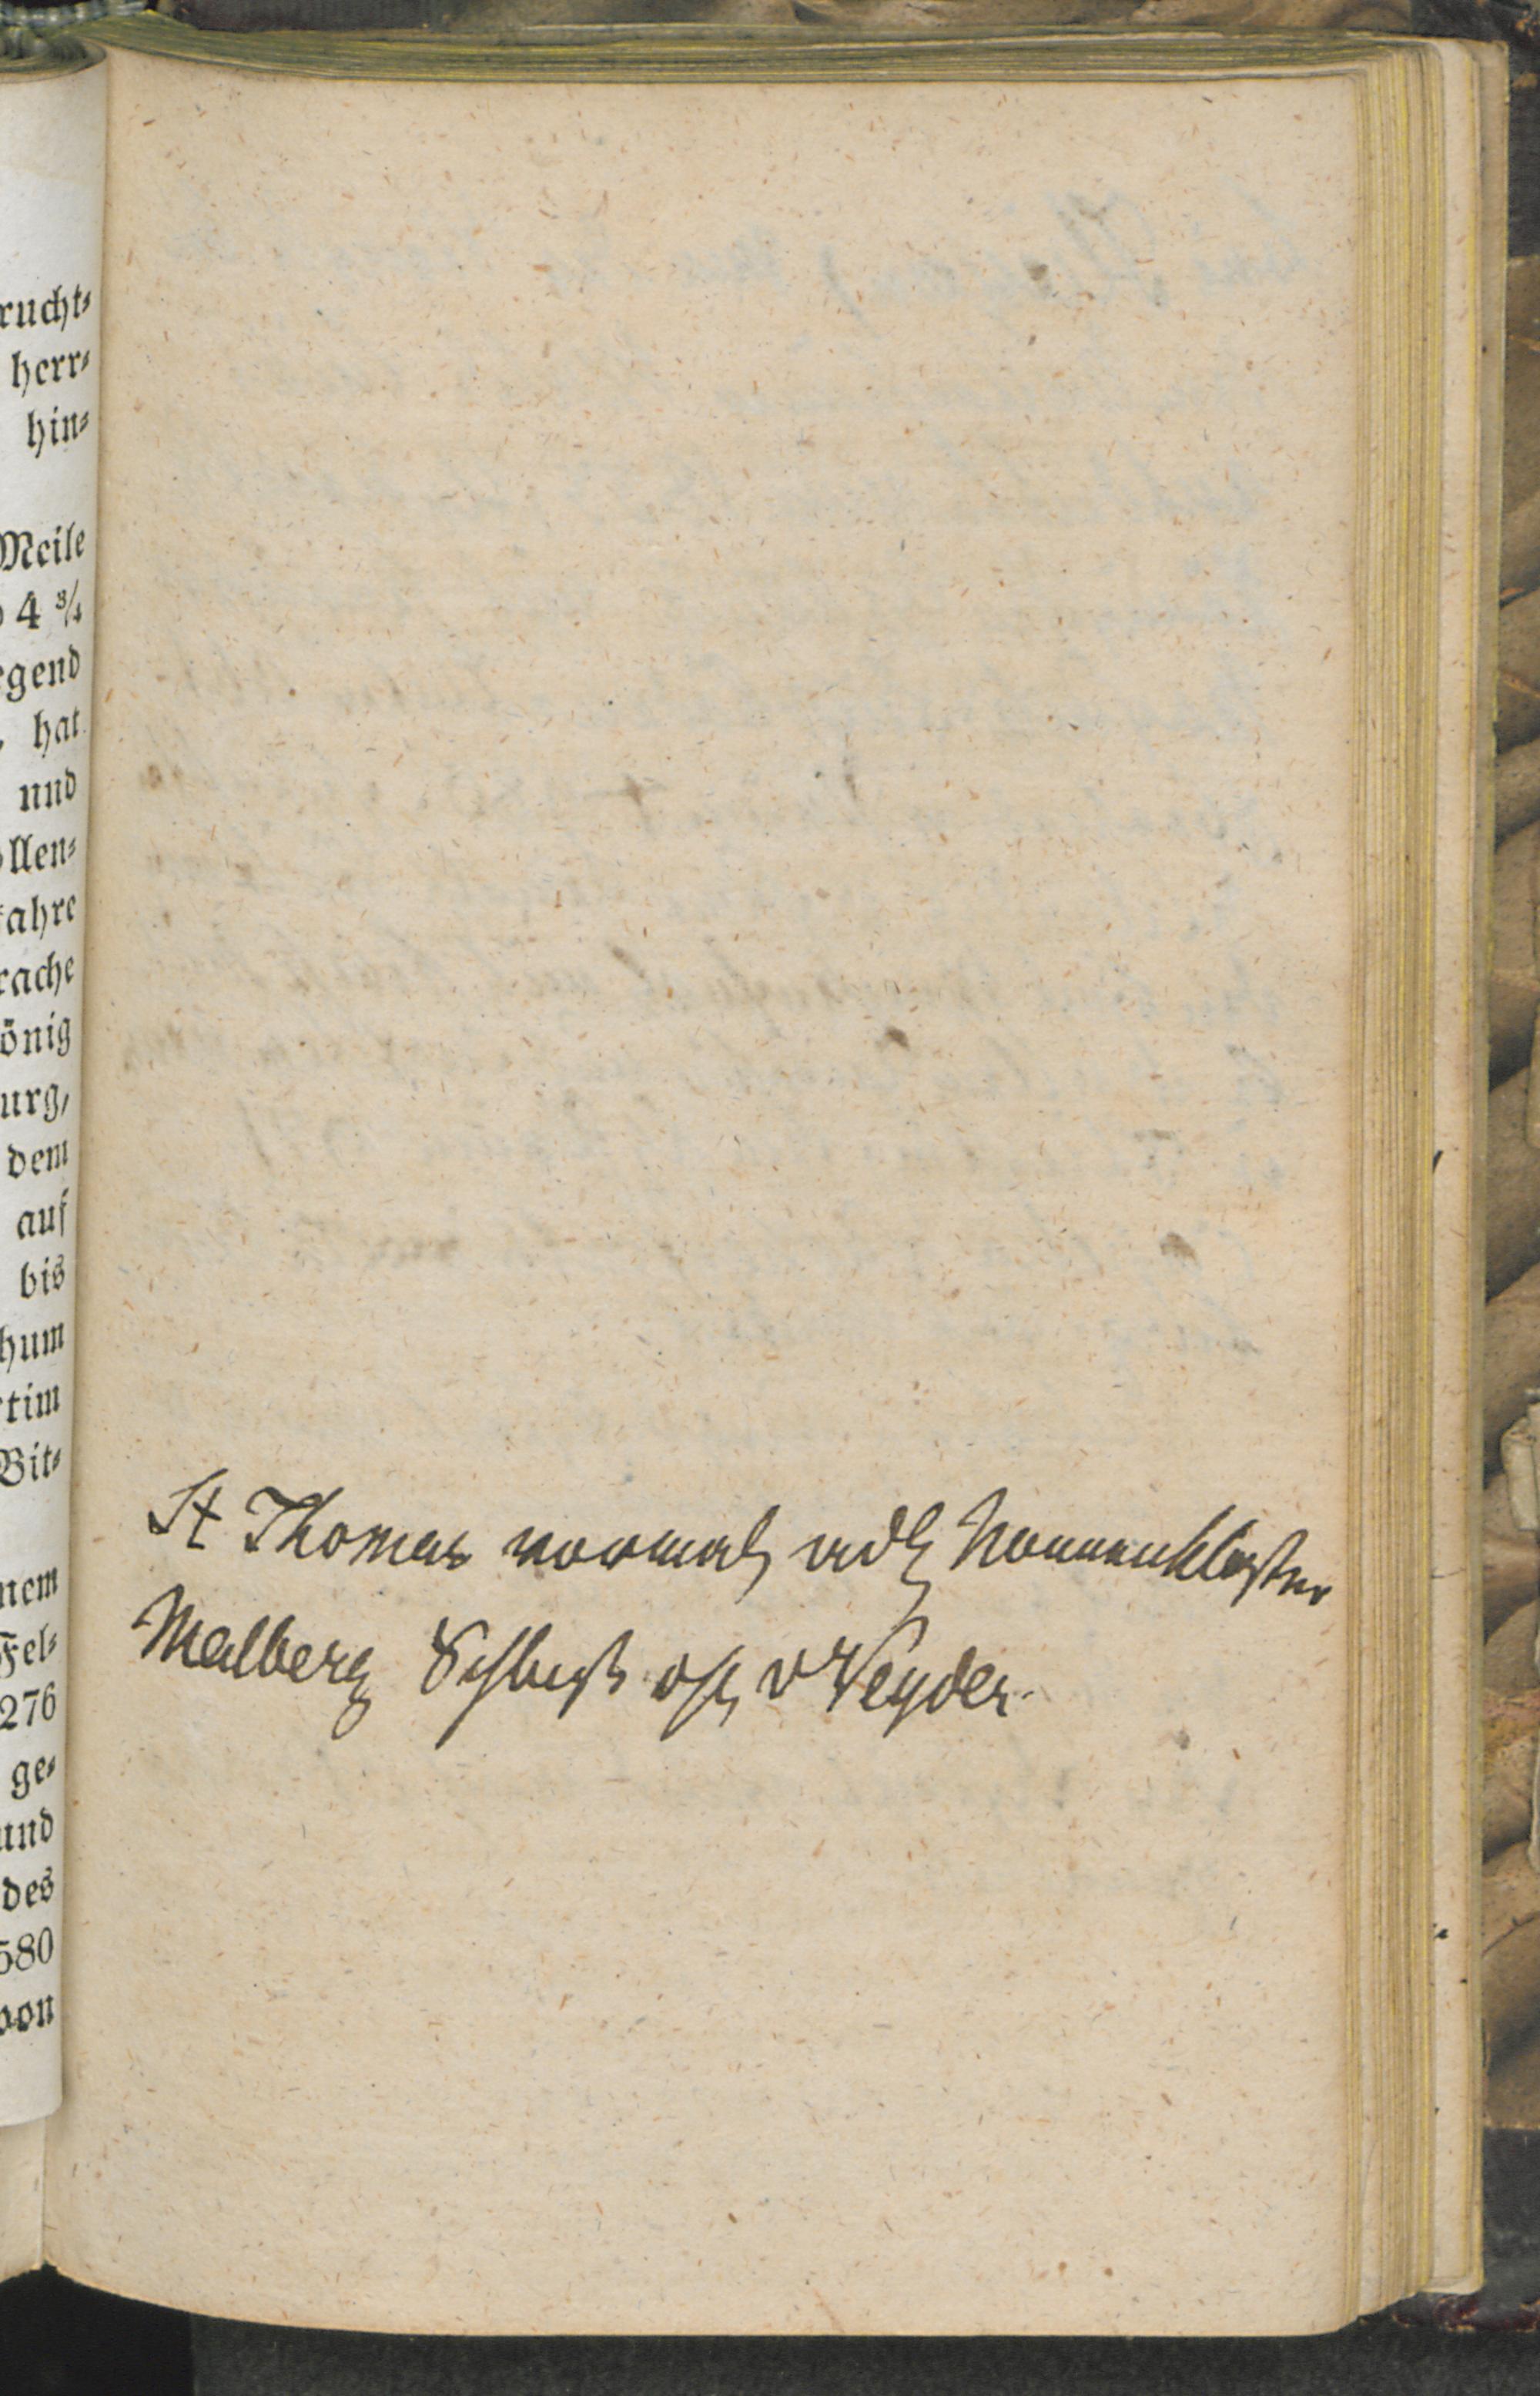 rucht⸗
herr⸗
hin⸗
Meile
4 3/4
egend
, hat
und
ollen⸗
ahre
rache
önig
urg,
dem
auf
bis
hum
rtim
Bit⸗
nem
Fel⸗
276
ge⸗
und
des
580
von
St Thomas vormals adl Nonnenkloster
Malberg Schloß v Veyder.